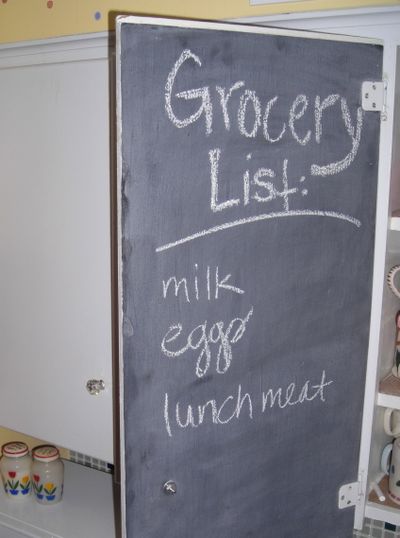 Grocery
List:
milk
eggs
lunch meat